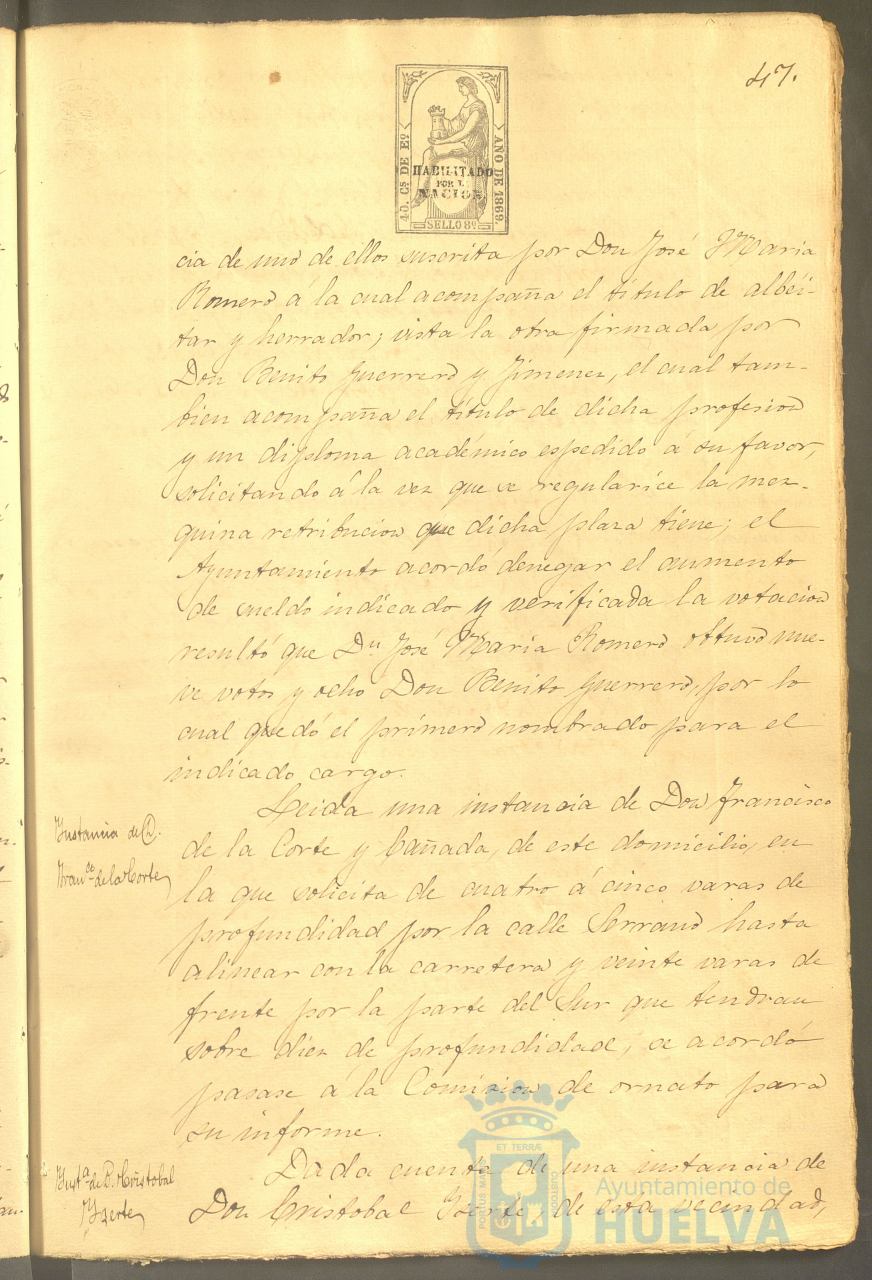 47.
40. Cs DE Eo
AÑO DE 1869.
HABILITADO
POR L
NACION
SELLO 8o
cia de uno de ellos suscrita por Don José Maria
Romero á la cual acompaña el titulo de albéi-
tar y herrador; vista la otra firmada por
Don Benito Guerrero y Jimenez, el cual tam-
bien acompaña el título de dicha profesion
y un diploma académico espedido á su favor,
solicitando á la vez que se regularice la mez-
quina retribucion que dicha plaza tiene; el
Ayuntamiento acordó denegar el aumento
de sueldo indicado y verificada la votacion
resultó que Dn José Maria Romero obtuvo nue-
ve votos y ocho Don Benito Guerrero, por lo
cual quedó el primero nombrado para el
indicado cargo.
Instancia de D.
Franco de la Corte
Leida una instancia de Don Francisco
de la Corte y Cañada, de este domicilio, en
la que solicita de cuatro á cinco varas de
profundidad por la calle Serrano hasta
alinear con la carretera y veinte varas de
frente por la parte del Sur que tendran
sobre diez de profundidad, se acordó
pasase á la Comision de ornato para
su informe.
Insta de D. Cristobal
Dada cuenta de una instancia de
Don Cristobal de esta vecindad,
PORTUS MARIS
ET TERRÆ
CUSTODIA
Ayuntamiento de
HUELVA